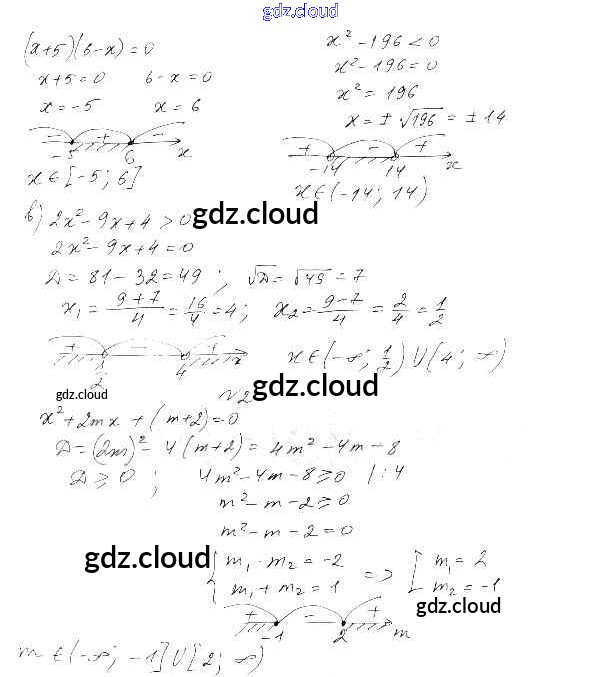 gdz.cloud
(x+5)(6-x)=0
x+5=0 6-x=0
x=-5 x=6
- + -
-5 6 x
x∈[-5; 6]
x²-196<0
x²-196=0
x²=196
x=±√196=±14
+ - +
-14 14 x
x∈(-14; 14)
в) 2x²-9x+4>0
gdz.cloud
2x²-9x+4=0
D=81-32=49; √D=√49=7
x₁=(9+7)/4=16/4=4; x₂=(9-7)/4=2/4=1/2
+ - +
1/2 4 x
x∈(-∞; 1/2)∪(4; ∞)
gdz.cloud
gdz.cloud
№2
x²+2mx+(m+2)=0
D=(2m)²-4(m+2)=4m²-4m-8
D≥0; 4m²-4m-8≥0 |:4
m²-m-2≥0
m²-m-2=0
gdz.cloud
{ m₁·m₂=-2 => [ m₁=2
{ m₁+m₂=1 [ m₂=-1
gdz.cloud
+ - +
-1 2 m
m∈(-∞; -1]∪[2; ∞)